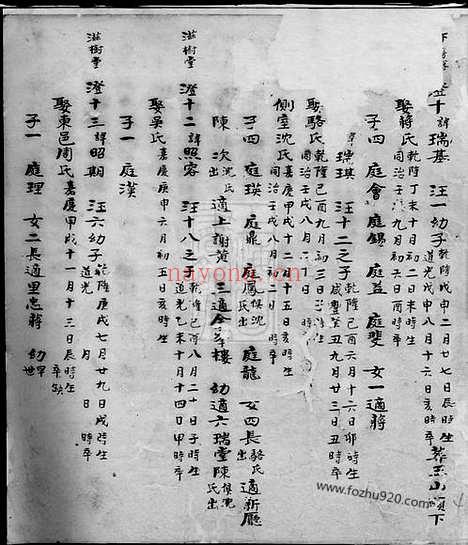 十 諱瑞基 汪一幼子 乾隆戊申二月廿七辰時生 道光戊申八月十六亥時卒 葬
娶蔣氏 乾隆丁未十月初二未時生 同治 九月初六酉時卒
子四 庭會 庭錫 庭益 庭斐 女一適蔣
瑞琪 汪十二之子 六月十六卯時生 咸豐 丑九月廿三丑時卒
娶駱氏 乾隆己酉九月初三日 時生 同治 戌八月
側室沈氏 嘉慶甲戌十二月十五亥時生 同治壬戌八月初二日 時卒
子四 庭瑛 庭鼎 庭鳳 沈氏出 庭龍 女四 長 駱氏出 適新廳
陳 次 沈氏出 適上謝黃 三適 樓 幼適六瑞堂陳 沈氏出
滋樹堂 澄十二 諱照容 汪十八之子 乾隆己酉八月二十日子時生 道光乙未十月十四日申時卒
娶吳氏 嘉慶庚申六月初五日亥時生
子一 庭漢
滋樹堂 澄十三 諱昭期 汪六幼子 乾隆庚戌七月廿九日戌時生 道光 月 日 時卒
娶東邑周氏 嘉慶甲戌十一月十三日辰時生 卒缺
子一 庭理 女二 長適里忠蔣 幼早世
nayona.cn
www.fozhu920.com